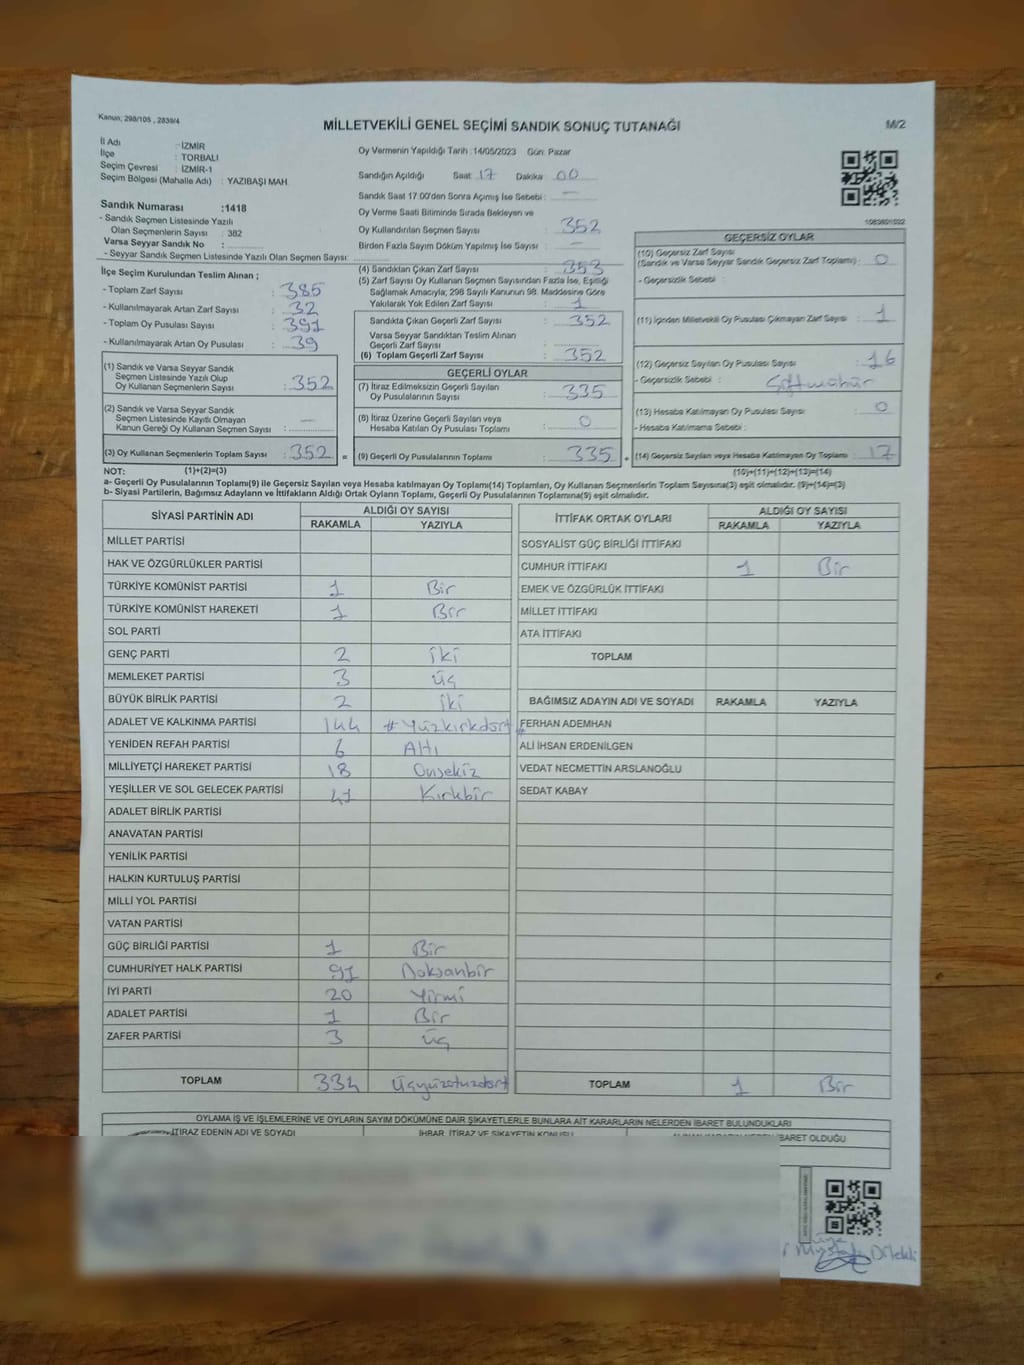 Kanun; 298/105 , 2839/4
MİLLETVEKİLİ GENEL SEÇİMİ SANDIK SONUÇ TUTANAĞI
M/2
İl Adı : İZMİR
İlçe : TORBALI
Seçim Çevresi : İZMİR-1
Seçim Bölgesi (Mahalle Adı) : YAZIBAŞI MAH.
Sandık Numarası :1418
- Sandık Seçmen Listesinde Yazılı
Olan Seçmenlerin Sayısı : 382
Varsa Seyyar Sandık No :
- Seyyar Sandık Seçmen Listesinde Yazılı Olan Seçmen Sayısı:
Oy Vermenin Yapıldığı Tarih :14/05/2023 Gün: Pazar
Sandığın Açıldığı Saat :17 Dakika : 00
Sandık Saat 17:00'den Sonra Açımış İse Sebebi : —
Oy Verme Saati Bitiminde Sırada Bekleyen ve
Oy Kullandırılan Seçmen Sayısı : 352
Birden Fazla Sayım Döküm Yapılmış İse Sayısı : —
1083801022
İlçe Seçim Kurulundan Teslim Alınan ;
- Toplam Zarf Sayısı : 385
- Kullanılmayarak Artan Zarf Sayısı : 32
- Toplam Oy Pusulası Sayısı : 391
- Kullanılmayarak Artan Oy Pusulası : 39
(1) Sandık ve Varsa Seyyar Sandık
Seçmen Listesinde Yazılı Olup
Oy Kullanan Seçmenlerin Sayısı : 352
(2) Sandık ve Varsa Seyyar Sandık
Seçmen Listesinde Kayıtlı Olmayan
Kanun Gereği Oy Kullanan Seçmen Sayısı : —
(3) Oy Kullanan Seçmenlerin Toplam Sayısı : 352
(4) Sandıktan Çıkan Zarf Sayısı : 353
(5) Zarf Sayısı Oy Kullanan Seçmen Sayısından Fazla İse, Eşitliği
Sağlamak Amacıyla; 298 Sayılı Kanunun 98. Maddesine Göre
Yakılarak Yok Edilen Zarf Sayısı : 1
Sandıkta Çıkan Geçerli Zarf Sayısı : 352
Varsa Seyyar Sandıktan Teslim Alınan
Geçerli Zarf Sayısı :
(6) Toplam Geçerli Zarf Sayısı : 352
GEÇERLİ OYLAR
(7) İtiraz Edilmeksizin Geçerli Sayılan
Oy Pusulalarının Sayısı : 335
(8) İtiraz Üzerine Geçerli Sayılan veya
Hesaba Katılan Oy Pusulası Toplamı : 0
= (9) Geçerli Oy Pusulalarının Toplamı : 335
GEÇERSİZ OYLAR
(10) Geçersiz Zarf Sayısı
(Sandık ve Varsa Seyyar Sandık Geçersiz Zarf Toplamı) : 0
- Geçersizlik Sebebi :
(11) İçinden Milletvekili Oy Pusulası Çıkmayan Zarf Sayısı : 1
(12) Geçersiz Sayılan Oy Pusulası Sayısı : 16
- Geçersizlik Sebebi : Çiftmühür
(13) Hesaba Katılmayan Oy Pusulası Sayısı : 0
- Hesaba Katılmama Sebebi :
+ (14) Geçersiz Sayılan veya Hesaba Katılmayan Oy Toplamı : 17
NOT: (1)+(2)=(3) (10)+(11)+(12)+(13)=(14)
a- Geçerli Oy Pusulalarının Toplamı(9) ile Geçersiz Sayılan veya Hesaba katılmayan Oy Toplamı(14) Toplamları, Oy Kullanan Seçmenlerin Toplam Sayısına(3) eşit olmalıdır. (9)+(14)=(3)
b- Siyasi Partilerin, Bağımsız Adayların ve İttifakların Aldığı Ortak Oyların Toplamı, Geçerli Oy Pusulalarının Toplamına(9) eşit olmalıdır.
SİYASİ PARTİNİN ADI ALDIĞI OY SAYISI
RAKAMLA YAZIYLA
MİLLET PARTİSİ
HAK VE ÖZGÜRLÜKLER PARTİSİ
TÜRKİYE KOMÜNİST PARTİSİ 1 Bir
TÜRKİYE KOMÜNİST HAREKETİ 1 Bir
SOL PARTİ
GENÇ PARTİ 2 iki
MEMLEKET PARTİSİ 3 üç
BÜYÜK BİRLİK PARTİSİ 2 iki
ADALET VE KALKINMA PARTİSİ 144 #Yüzkırkdört#
YENİDEN REFAH PARTİSİ 6 Altı
MİLLİYETÇİ HAREKET PARTİSİ 18 Onsekiz
YEŞİLLER VE SOL GELECEK PARTİSİ 41 Kırkbir
ADALET BİRLİK PARTİSİ
ANAVATAN PARTİSİ
YENİLİK PARTİSİ
HALKIN KURTULUŞ PARTİSİ
MİLLİ YOL PARTİSİ
VATAN PARTİSİ
GÜÇ BİRLİĞİ PARTİSİ 1 Bir
CUMHURİYET HALK PARTİSİ 91 Doksanbir
İYİ PARTİ 20 Yirmi
ADALET PARTİSİ 1 Bir
ZAFER PARTİSİ 3 üç
TOPLAM 334 Üçyüzotuzdört
İTTİFAK ORTAK OYLARI ALDIĞI OY SAYISI
RAKAMLA YAZIYLA
SOSYALİST GÜÇ BİRLİĞİ İTTİFAKI
CUMHUR İTTİFAKI 1 Bir
EMEK VE ÖZGÜRLÜK İTTİFAKI
MİLLET İTTİFAKI
ATA İTTİFAKI
TOPLAM
BAĞIMSIZ ADAYIN ADI VE SOYADI RAKAMLA YAZIYLA
FERHAN ADEMHAN
ALİ İHSAN ERDENİLGEN
VEDAT NECMETTİN ARSLANOĞLU
SEDAT KABAY
TOPLAM 1 Bir
OYLAMA İŞ VE İŞLEMLERİNE VE OYLARIN SAYIM DÖKÜMÜNE DAİR ŞİKAYETLERLE BUNLARA AİT KARARLARIN NELERDEN İBARET BULUNDUKLARI
İTİRAZ EDENİN ADI VE SOYADI İHBAR, İTİRAZ VE ŞİKAYETİN KONUSU İBARET OLDUĞU
Üye
Mustafa Dilekli